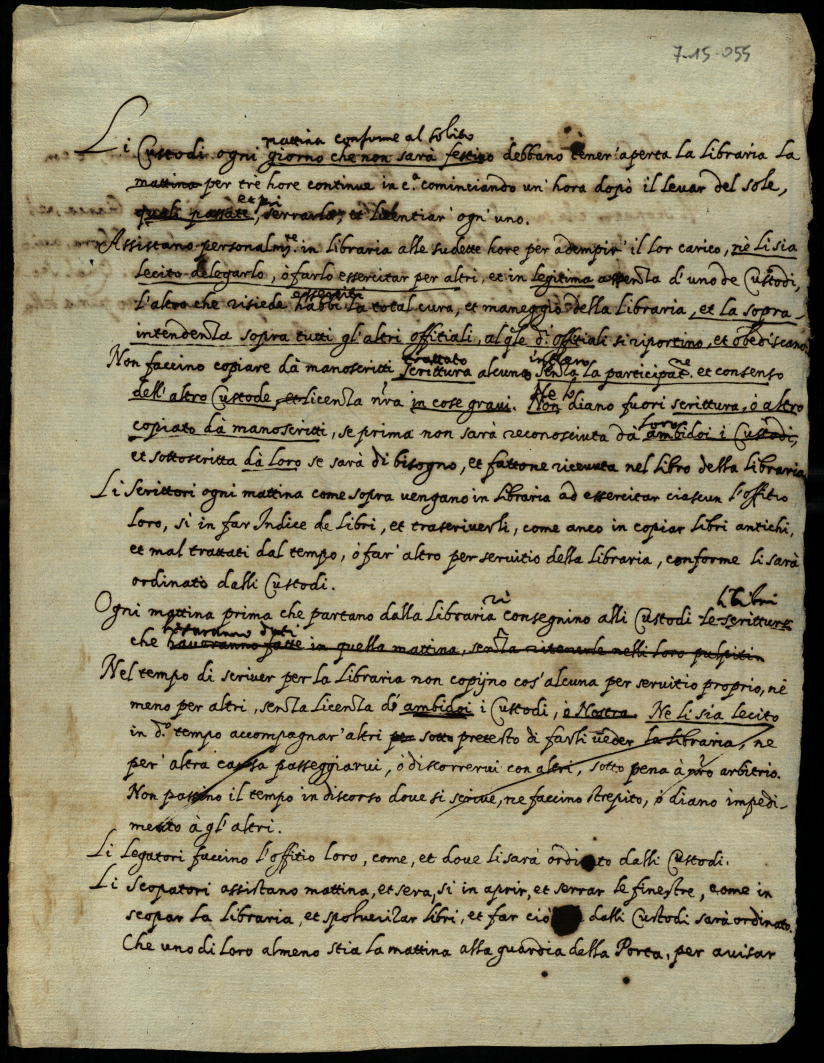 7-15-055
mattina conforme al solito
Li Custodi ogni giorno che non sarà festivo debbano tener' aperta la libraria la
mattina per tre hore continue in c.ª cominciando un' hora dopò il levar del sole,
et poi
quali passate, serrarla, et licentiar' ogni uno.
Assistano personalm.te in libraria alle sudette hore per adempir' il lor carico, nè li sia
lecito delegarlo, ò farlo essercitar per altri, et in legitima assenza d'uno de Custodi,
esserciti
l'altro che risiede habbi la total cura, et maneggio della libraria, et la sopra-
intendenza sopra tutti gl'altri offitiali, al q.le d.i offitiali si riportino, et obediscano.
trattato
Non faccino copiare dà manoscritti scrittura alcuna senza la participat.ne et consenso
dell'altro Custode, et licenza n'ra in cose gravi. Non diano fuori scrittura, ò altro
Ne lo
loro
copiato dà manoscritti, se prima non sarà reconosciuta dà ambidoi i Custodi,
et sottoscritta dà loro se sarà di bisogno, et fattone ricevuta nel libro della libraria
Li Scrittori ogni mattina come sopra vengano in libraria ad essercitar ciascun l'offitio
loro, si in far Indice de libri, et trascriverli, come anco in copiar libri antichi,
et mal trattati dal tempo, ò far' altro per servitio della libraria, conforme li sarà
ordinato dalli Custodi.
li libri
Ogni mattina prima che partano dalla libraria consegnino alli Custodi le scritture
che haveranno fatte in quella mattina, senza ritenerle nelli loro pulpiti
Nel tempo di scriver per la libraria non copijno cos'alcuna per servitio proprio, nè
meno per altri, senza licenza de ambidoi i Custodi, ò Nostra. Ne li sia lecito
in d.º tempo accompagnar' altri sotto pretesto di farli veder la libraria, ne
per' altra causa passeggiarvi, ò discorrervi con altri, sotto pena à n'ro arbitrio.
Non passino il tempo in discorso dove si scrive, ne faccino strepito, ò diano impedi-
mento à gl'altri.
Li legatori faccino l'offitio loro, come, et dove li sarà ordinato dalli Custodi.
Li Scopatori assistano mattina, et sera, si in aprir, et serrar le finestre, come in
scopar la libraria, et spolverizar libri, et far ciò dalli Custodi sarà ordinato.
Che uno di loro almeno stia la mattina alla guardia della Porta, per avisar